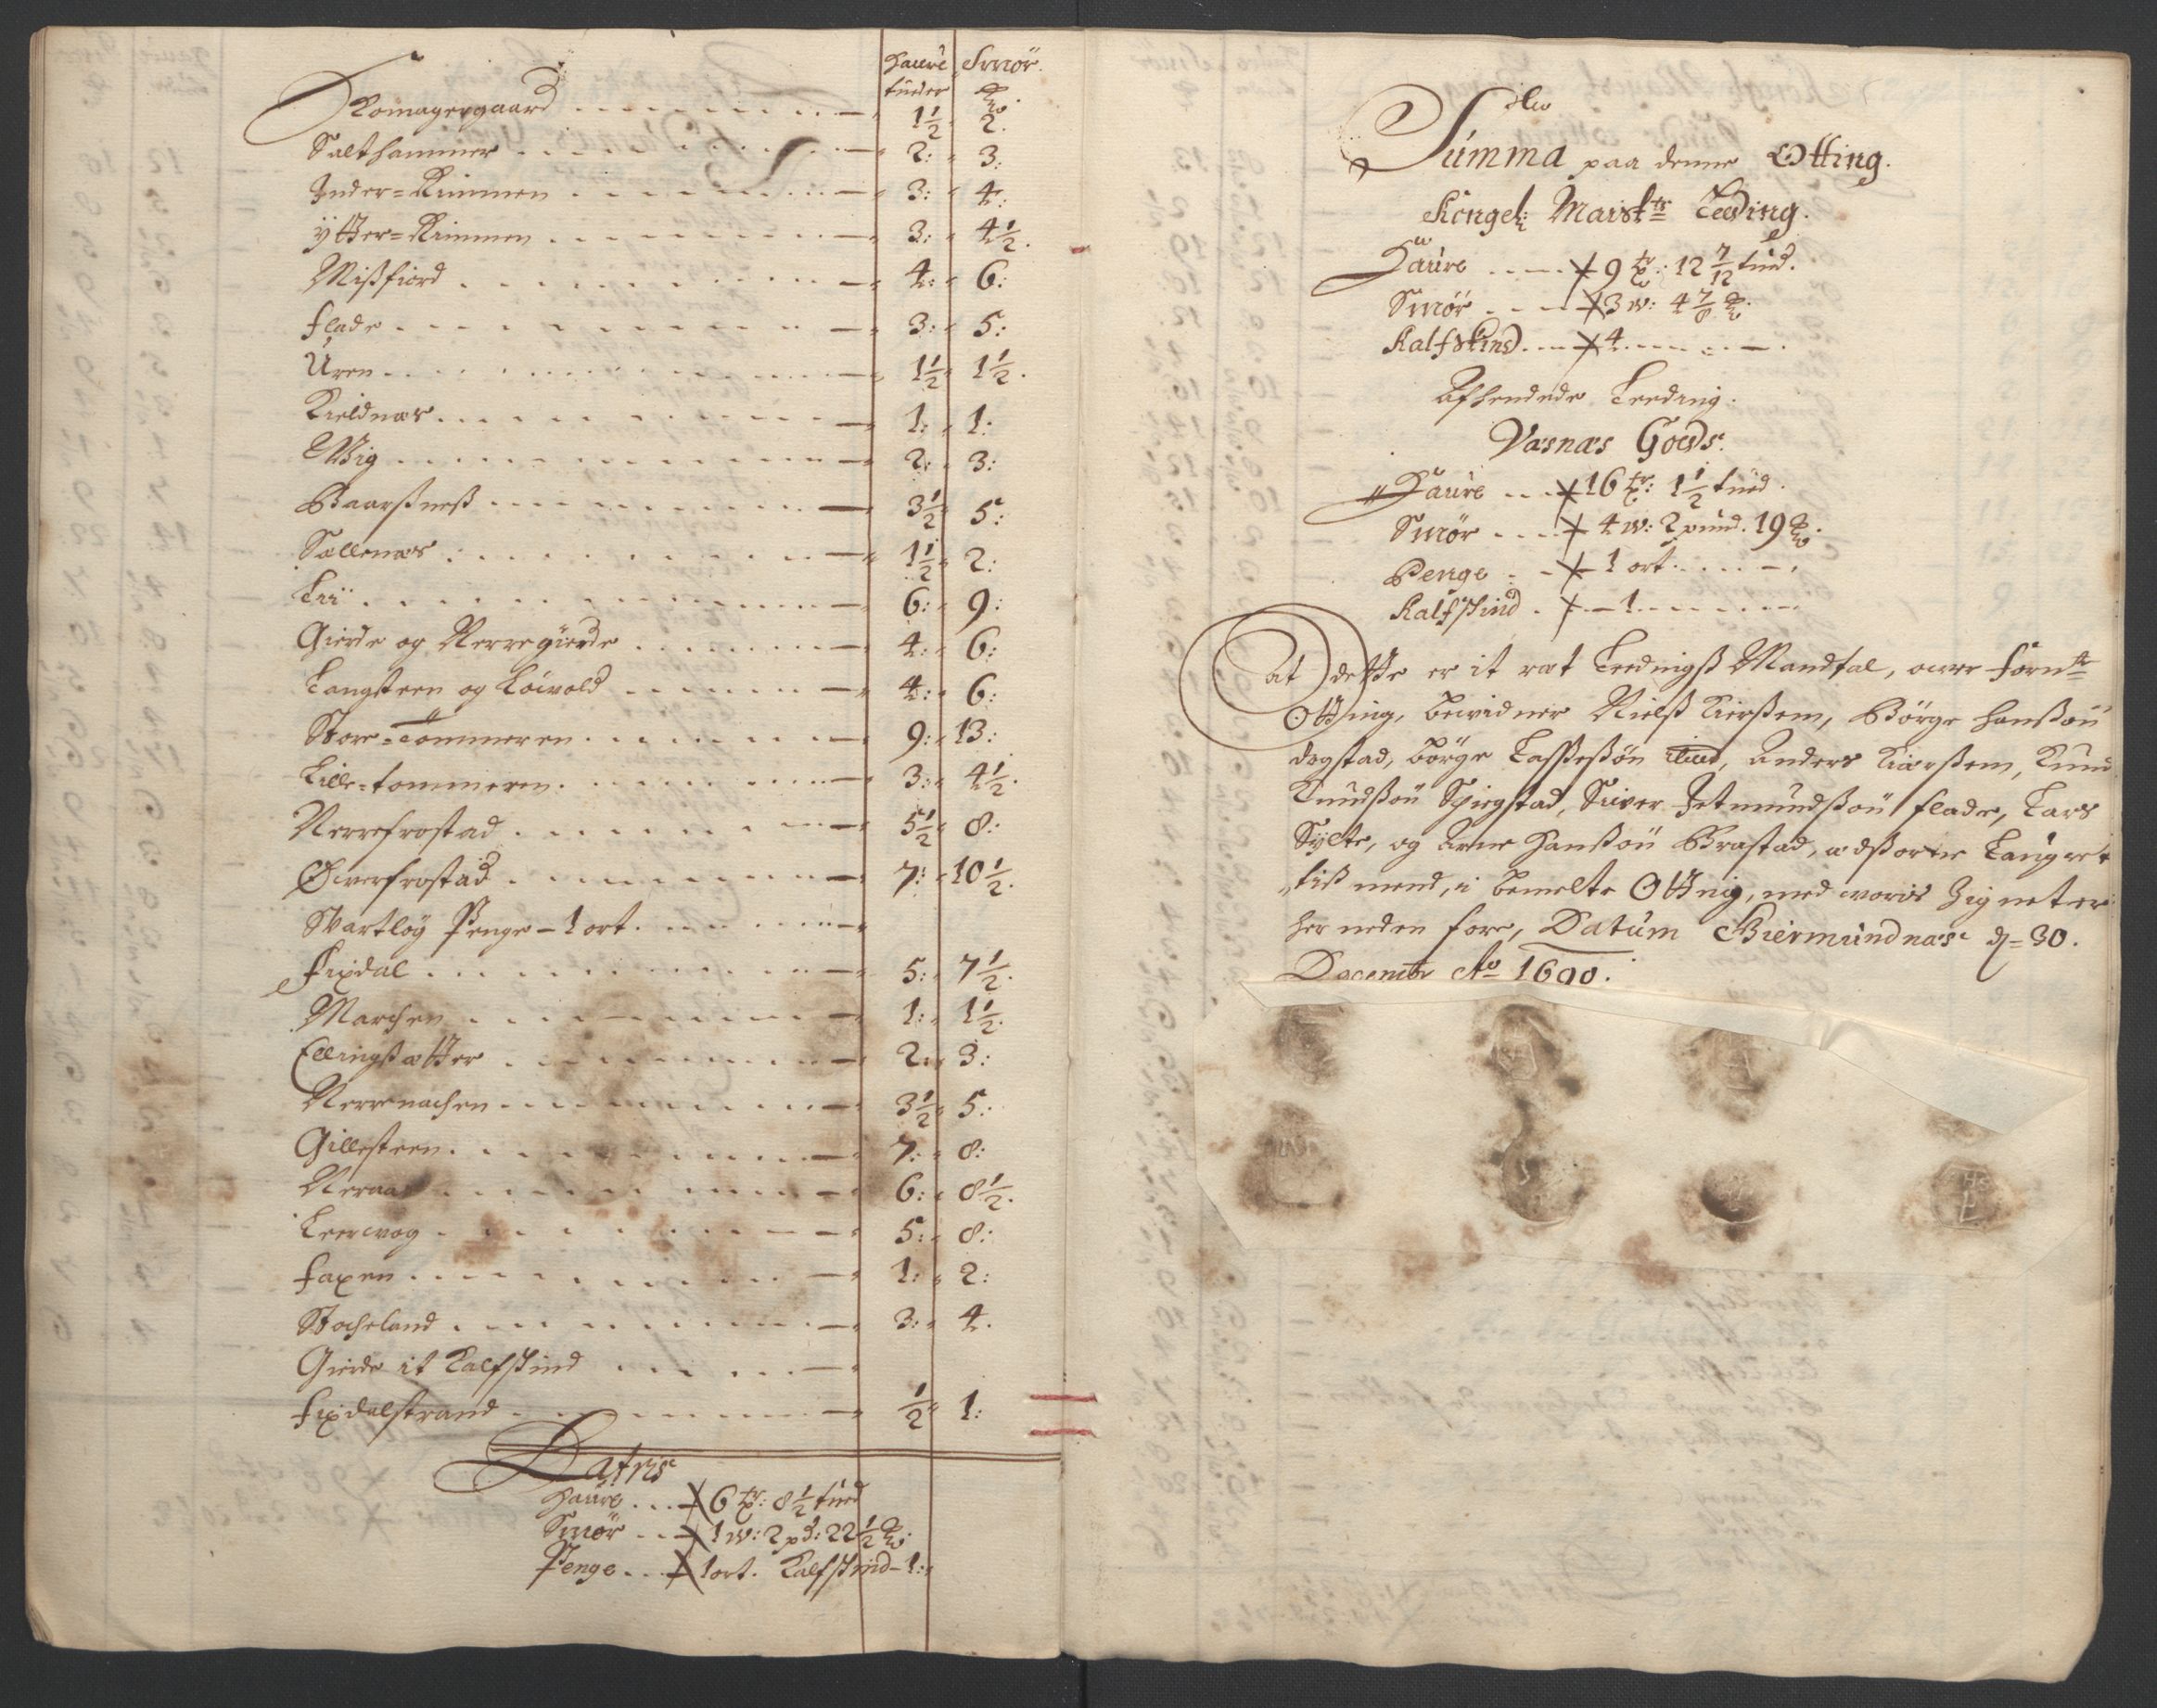 Haure Smör.
tunder ℔.
Komagergaard 1½ 2.
Salthammer 2: 3:
Inder=Rimmen 3: 4:
ÿtter=Rimmen 3: 4½.
Mißfiord 4: 6:
flade 3: 5:
Uren 1½ 1½.
Kieldnæs 1: 1:
Wiig 2: 3:
Baarßneß 3½ 5:
Sallenæs 1½ 2:
Lii 6: 9:
Gierde og Nerregierde 4: 6:
Langsteen og Löiwold 4: 6:
Store=Tommeren 9: 13:
Lille=tommeren 3: 4½.
Nerrefrostad 5½ 8:
Öwerfrostad 7: 10½.
Svartlöÿ Penge - 1 ort.
Fixdal 5: 7½.
Marchen 1: 1½.
Ellingßætter 2: 3:
Nerrenachen 3½ 5:
Gillesteen 7: 8:
Neraas 6: 8½.
Leerwog 5: 8:
faxen 1: 2:
Stocheland 3: 4.
Gierde it Kalfskind
fixdalstrand ½ 1:
Latris
Haure 6 tr: 8½ tund
Smör 1 w: 2 pd: 22½ ℔:
Penge 1 ort. Kalfskind - 1:
Summa paa denne Otting.
Kongel: Maisttr Leding.
Haure 9 tr: 12 7/12 tund.
Smör 3 w: 4 7/8 ℔.
Kalfskind 4
Afhendede Leeding.
Væsnæs Gods.
Haure 16 tr: 1½ tund.
Smör 4 w: 2 pund. 19 ℔.
Penge 1 ort.
Kalfskind 1
At dette er it ræt Leedings Mandtal, ower förnte
Otting, bewidner Nielß Kierßem, Börge Hanßön
dogstad, börge Lasseßön, Anders Kierßem, Knud
Knudßön Spiegstad, Siver Jetmundßön flade, Lars
Sylte, og Arne Hanßön Brastad, Laugret
tiß mend, i bemelte Otting, med woris Zigneter
her neden fore, Datum Biermundnæs d= 30.
Decembr Ao 1690.